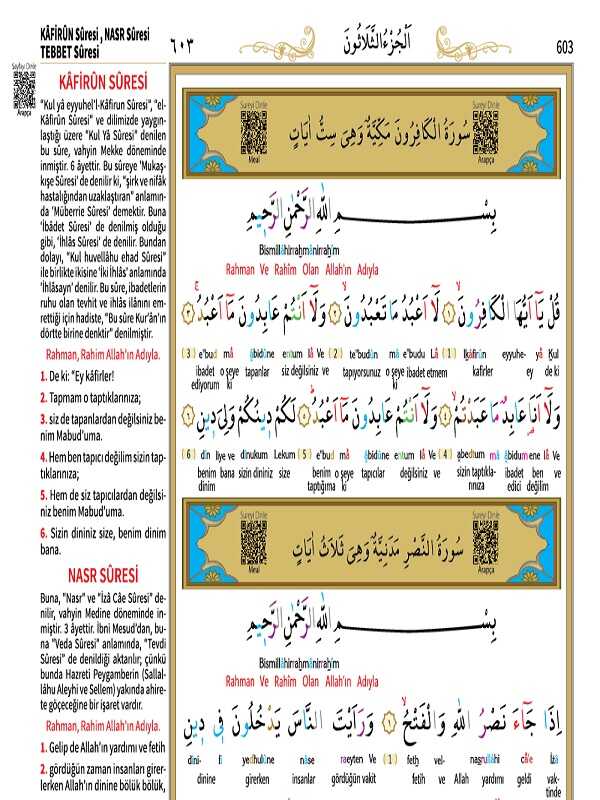 KÂFİRÛN Sûresi , NASR Sûresi
TEBBET Sûresi
٦٠٣
اَلْجُزْءُ الثَّلَاثُونَ
603
Sayfayı Dinle
Arapça
KÂFİRÛN SÛRESİ
"Kul yâ eyyuhe'l-Kâfirun Sûresi", "el-
Kâfirûn Sûresi" ve dilimizde yaygın-
laştığı üzere "Kul Yâ Sûresi" denilen
bu sûre, vahyin Mekke döneminde
inmiştir. 6 âyettir. Bu sûreye 'Mukaş-
kışe Sûresi' de denilir ki, "şirk ve nifâk
hastalığından uzaklaştıran" anlamın-
da 'Müberrie Sûresi' demektir. Buna
'İbâdet Sûresi' de denilmiş olduğu
gibi, 'İhlâs Sûresi' de denilir. Bundan
dolayı, "Kul huvellâhu ehad Sûresi"
ile birlikte ikisine 'iki ihlâs' anlamında
'ihlâsayn' denilir. Bu sûre, ibadetlerin
ruhu olan tevhit ve ihlâs ilânını em-
rettiği için hadiste, "Bu sûre Kur'ân'ın
dörtte birine denktir" denilmiştir.
Rahman, Rahim Allah'ın Adıyla.
1. De ki: "Ey kâfirler!
2. Tapmam o taptıklarınıza;
3. siz de tapanlardan değilsiniz be-
nim Mabud'uma.
4. Hem ben tapıcı değilim sizin tap-
tıklarınıza;
5. Hem de siz tapıcılardan değilsi-
niz benim Mabud'uma.
6. Sizin dininiz size, benim dinim
bana.
NASR SÛRESİ
Buna, "Nasr" ve "İzâ Câe Sûresi" de-
nilir, vahyin Medine döneminde in-
miştir. 3 âyettir. İbni Mesud'dan, bu-
na "Veda Sûresi" anlamında, "Tevdi
Sûresi" de denildiği aktarılır; çünkü
bunda Hazreti Peygamberin (Sallal-
lâhu Aleyhi ve Sellem) yakında ahire-
te göçeceğine bir işaret vardır.
Rahman, Rahim Allah'ın Adıyla.
1. Gelip de Allah'ın yardımı ve fetih
2. gördüğün zaman insanları girer-
lerken Allah'ın dinine bölük bölük,
Sureyi Dinle
Meal
سُورَةُ الْكَافِرُونَ مَكِّيَّةٌ وَهِىَ سِتُّ اٰيَاتٍ
Sureyi Dinle
Arapça
بِسْمِ اللّٰهِ الرَّحْمٰنِ الرَّحٖيمِ
Bismillâhirraḥmânirraḥîm
Rahman Ve Rahîm Olan Allah'ın Adıyla
قُلْ يَٓا اَيُّهَا الْكَافِرُونَۙ ﴿١﴾ لَٓا اَعْبُدُ مَا تَعْبُدُونَۙ ﴿٢﴾ وَلَٓا اَنْتُمْ عَابِدُونَ مَٓا اَعْبُدُۚ ﴿٣﴾
(3) e'bud mâ âbidûne entum lâ Ve (2) te'budûn mâ e'budu Lâ (1) lkâfirûn eyyuhe- yâ Kul
ibadet o şeye tapanlar siz değilsiniz ve tapıyorsunuz o şeye ibadet etmem kafirler ey de ki
ediyorum ki ki
وَلَٓا اَنَا عَابِدٌ مَا عَبَدْتُمْۙ ﴿٤﴾ وَلَٓا اَنْتُمْ عَابِدُونَ مَٓا اَعْبُدُۜ ﴿٥﴾ لَكُمْ دٖينُكُمْ وَلِىَ دٖينِ ﴿٦﴾
(6) dîn liye ve dînukum Lekum (5) e'bud mâ âbidûne entum lâ Ve (4) abedtum mâ âbidumene lâ Ve
benim bana sizin dininiz size benim o şeye tapıcılar değilsiniz ve sizin taptıkla- ibadet ben ve
dinim taptığıma ki rınıza edici değilim
Sureyi Dinle
Meal
سُورَةُ النَّصْرِ مَدَنِيَّةٌ وَهِىَ ثَلَاثُ اٰيَاتٍ
Sureyi Dinle
Arapça
بِسْمِ اللّٰهِ الرَّحْمٰنِ الرَّحٖيمِ
Bismillâhirraḥmânirraḥîm
Rahman Ve Rahîm Olan Allah'ın Adıyla
اِذَا جَٓاءَ نَصْرُ اللّٰهِ وَالْفَتْحُۙ ﴿١﴾ وَرَاَيْتَ النَّاسَ يَدْخُلُونَ فٖى دٖينِ
dîni- fî yedhulûne nâse raeyten Ve (1) fetḥ vel- naṣrullâhi câ'e İzâ
dinine girerken insanlar gördüğün vakit fetih ve Allah yardımı geldi vak-
tinde